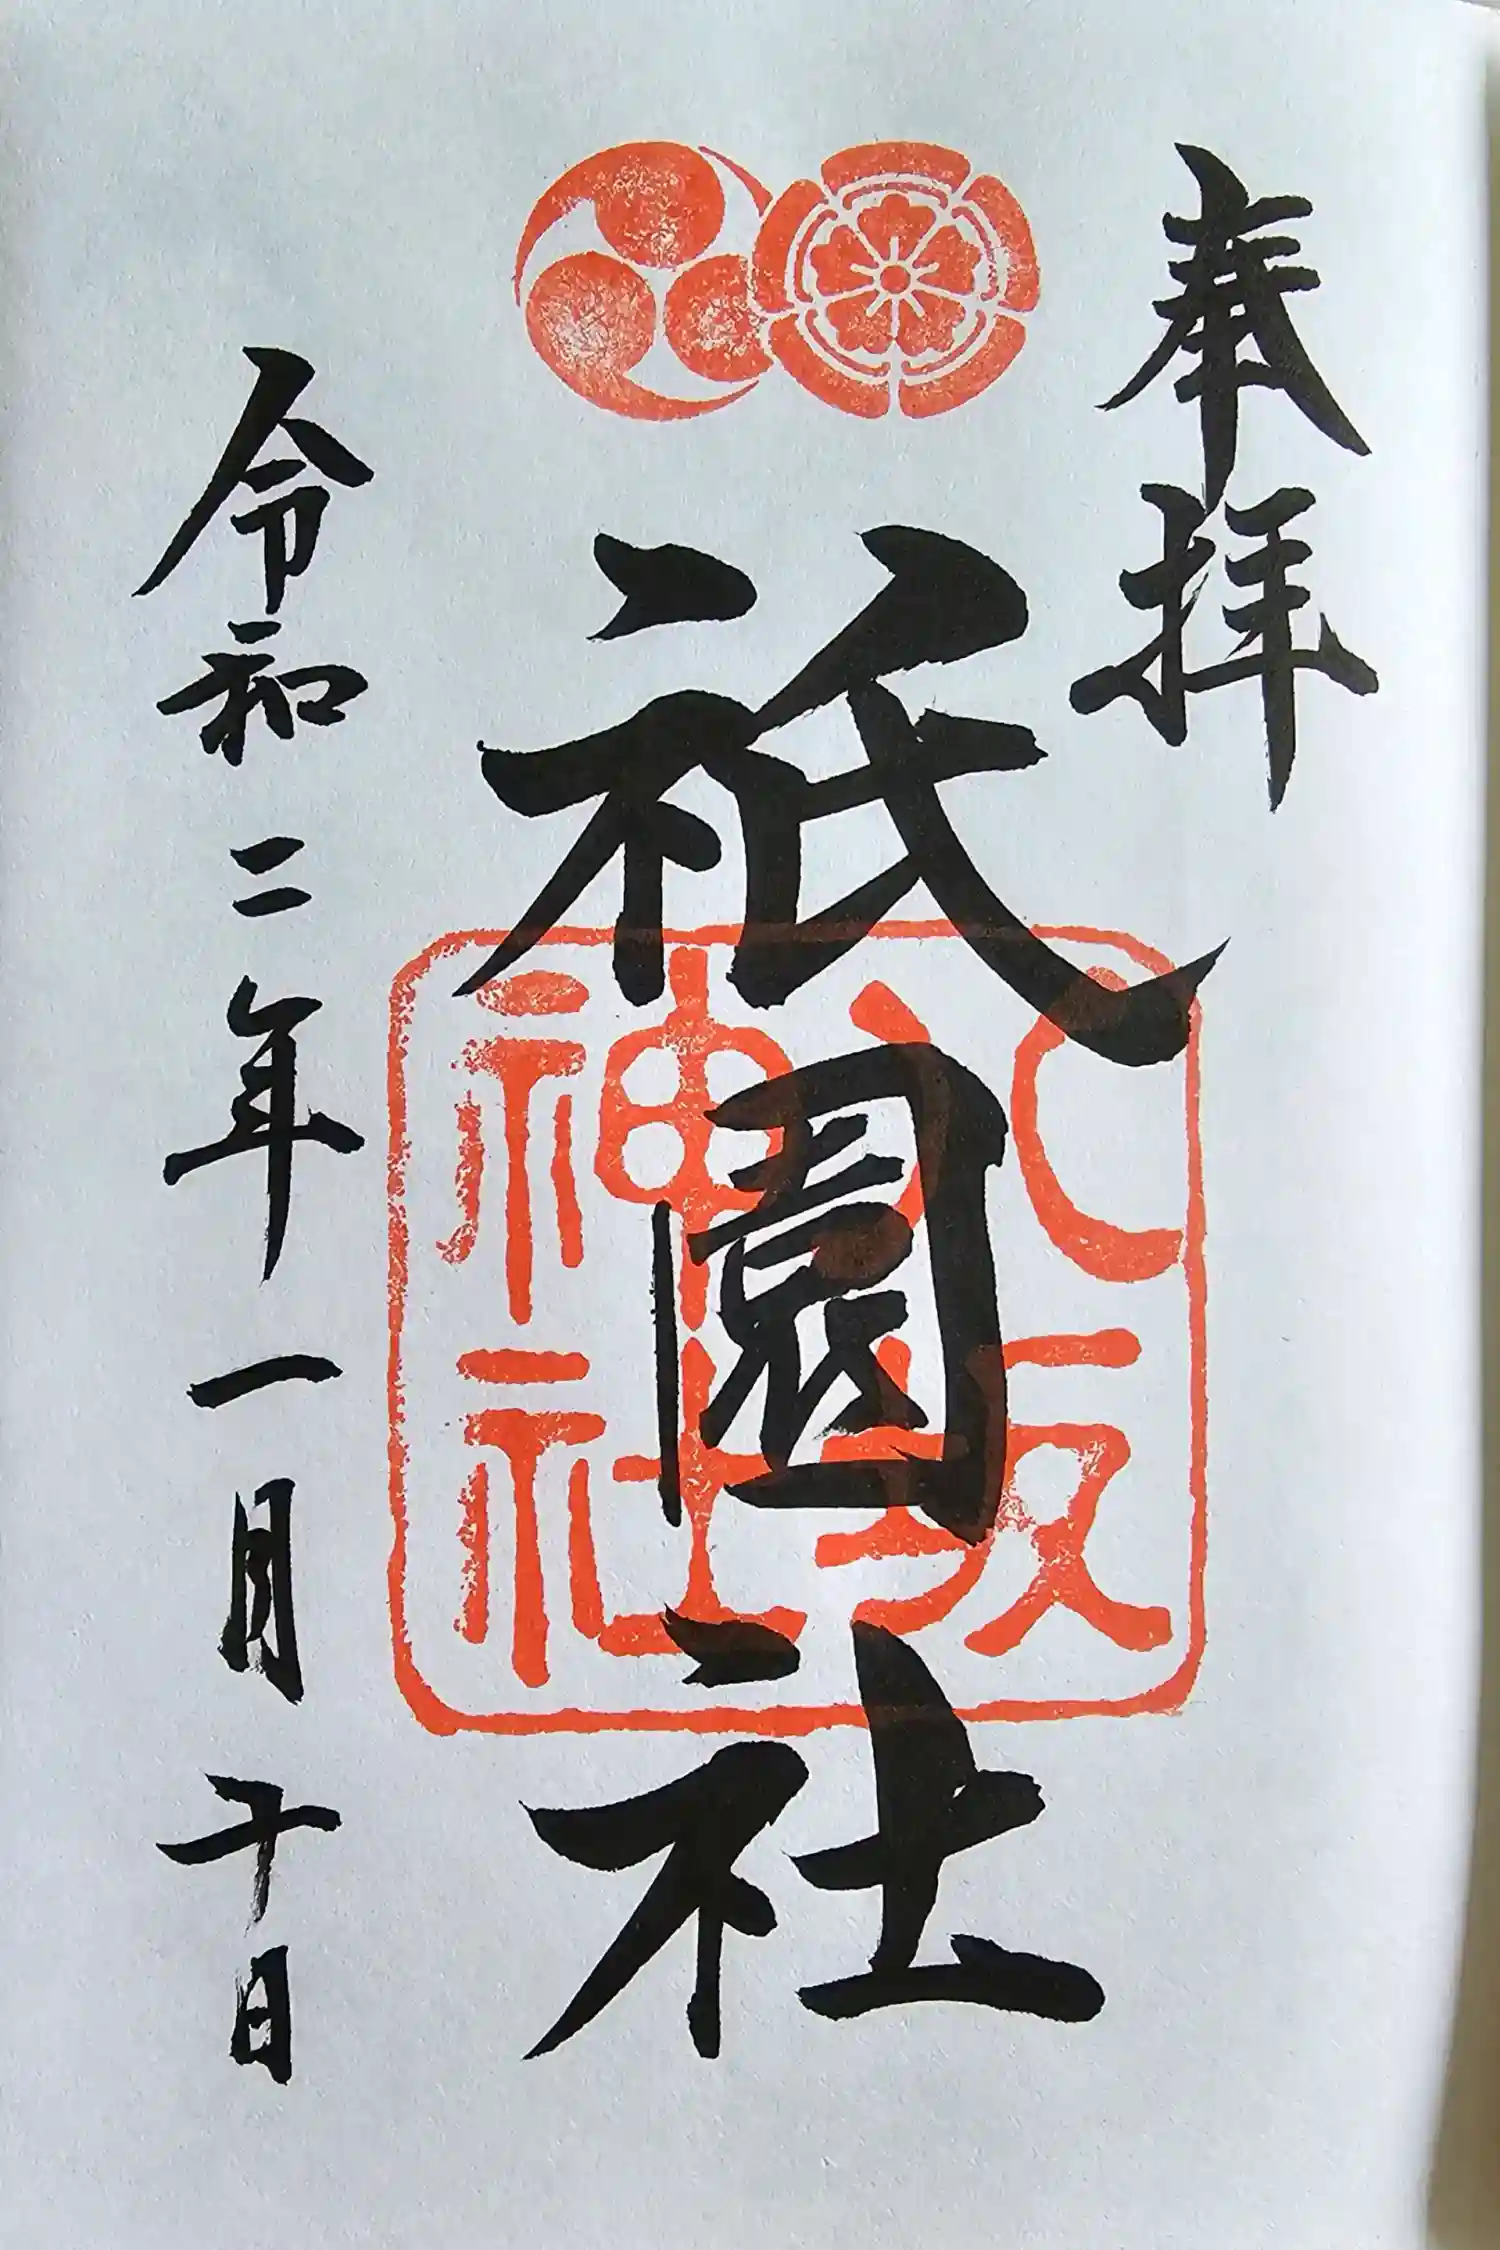 奉拝
祇園社
八坂
神社
令和二年一月十日